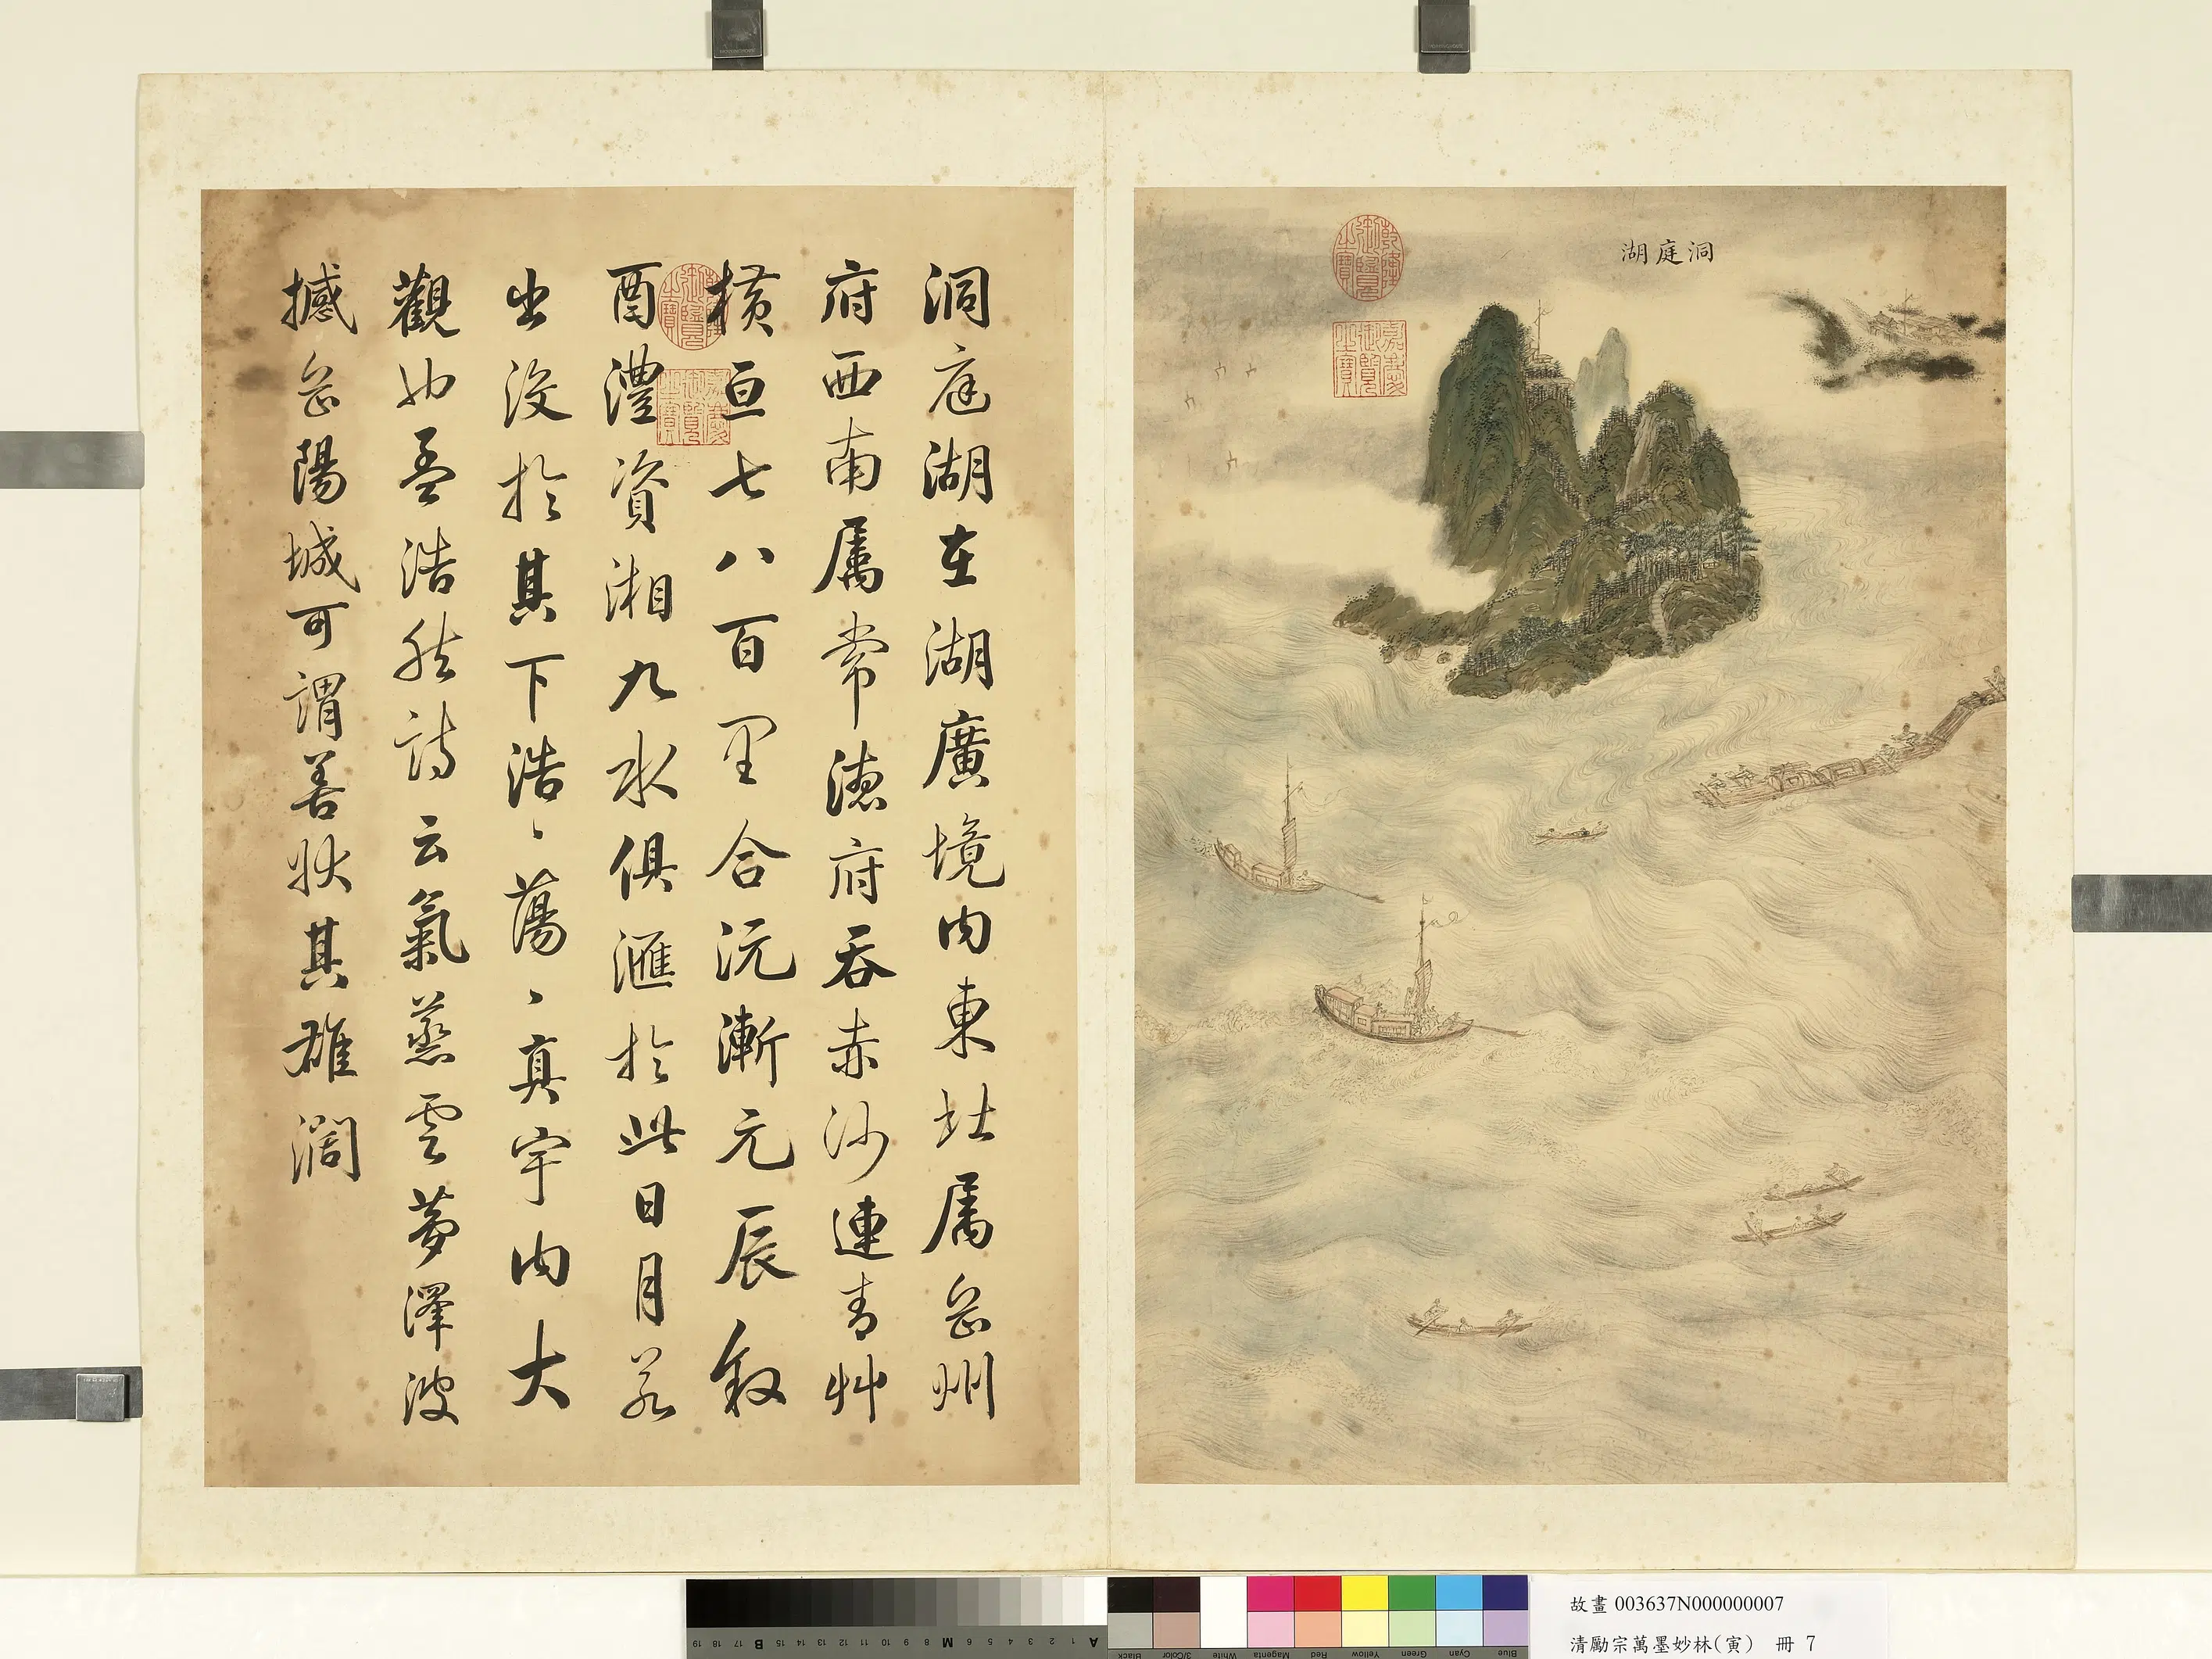 洞庭湖
乾隆御覽之寶
嘉慶御覽之寶
洞庭湖在湖廣境內東北屬岳州
府西南屬常德府吞赤沙連青艸
橫亘七八百里合沅漸元辰敘
酉澧資湘九水俱滙於此日月若
出沒於其下浩〻蕩〻真宇內大
觀也孟浩然詩云氣蒸雲夢澤波
撼岳陽城可謂善狀其雄濶
乾隆御覽之寶
嘉慶御覽之寶
19 18 17 B 16 15 14 13 12 11 10 9 8 M 7 6 5 4 3 2 1 A
Black 3/Color White Magenta Red Yellow Green Cyan Blue
故畫 003637N000000007
清勵宗萬墨妙林(寅) 冊 7